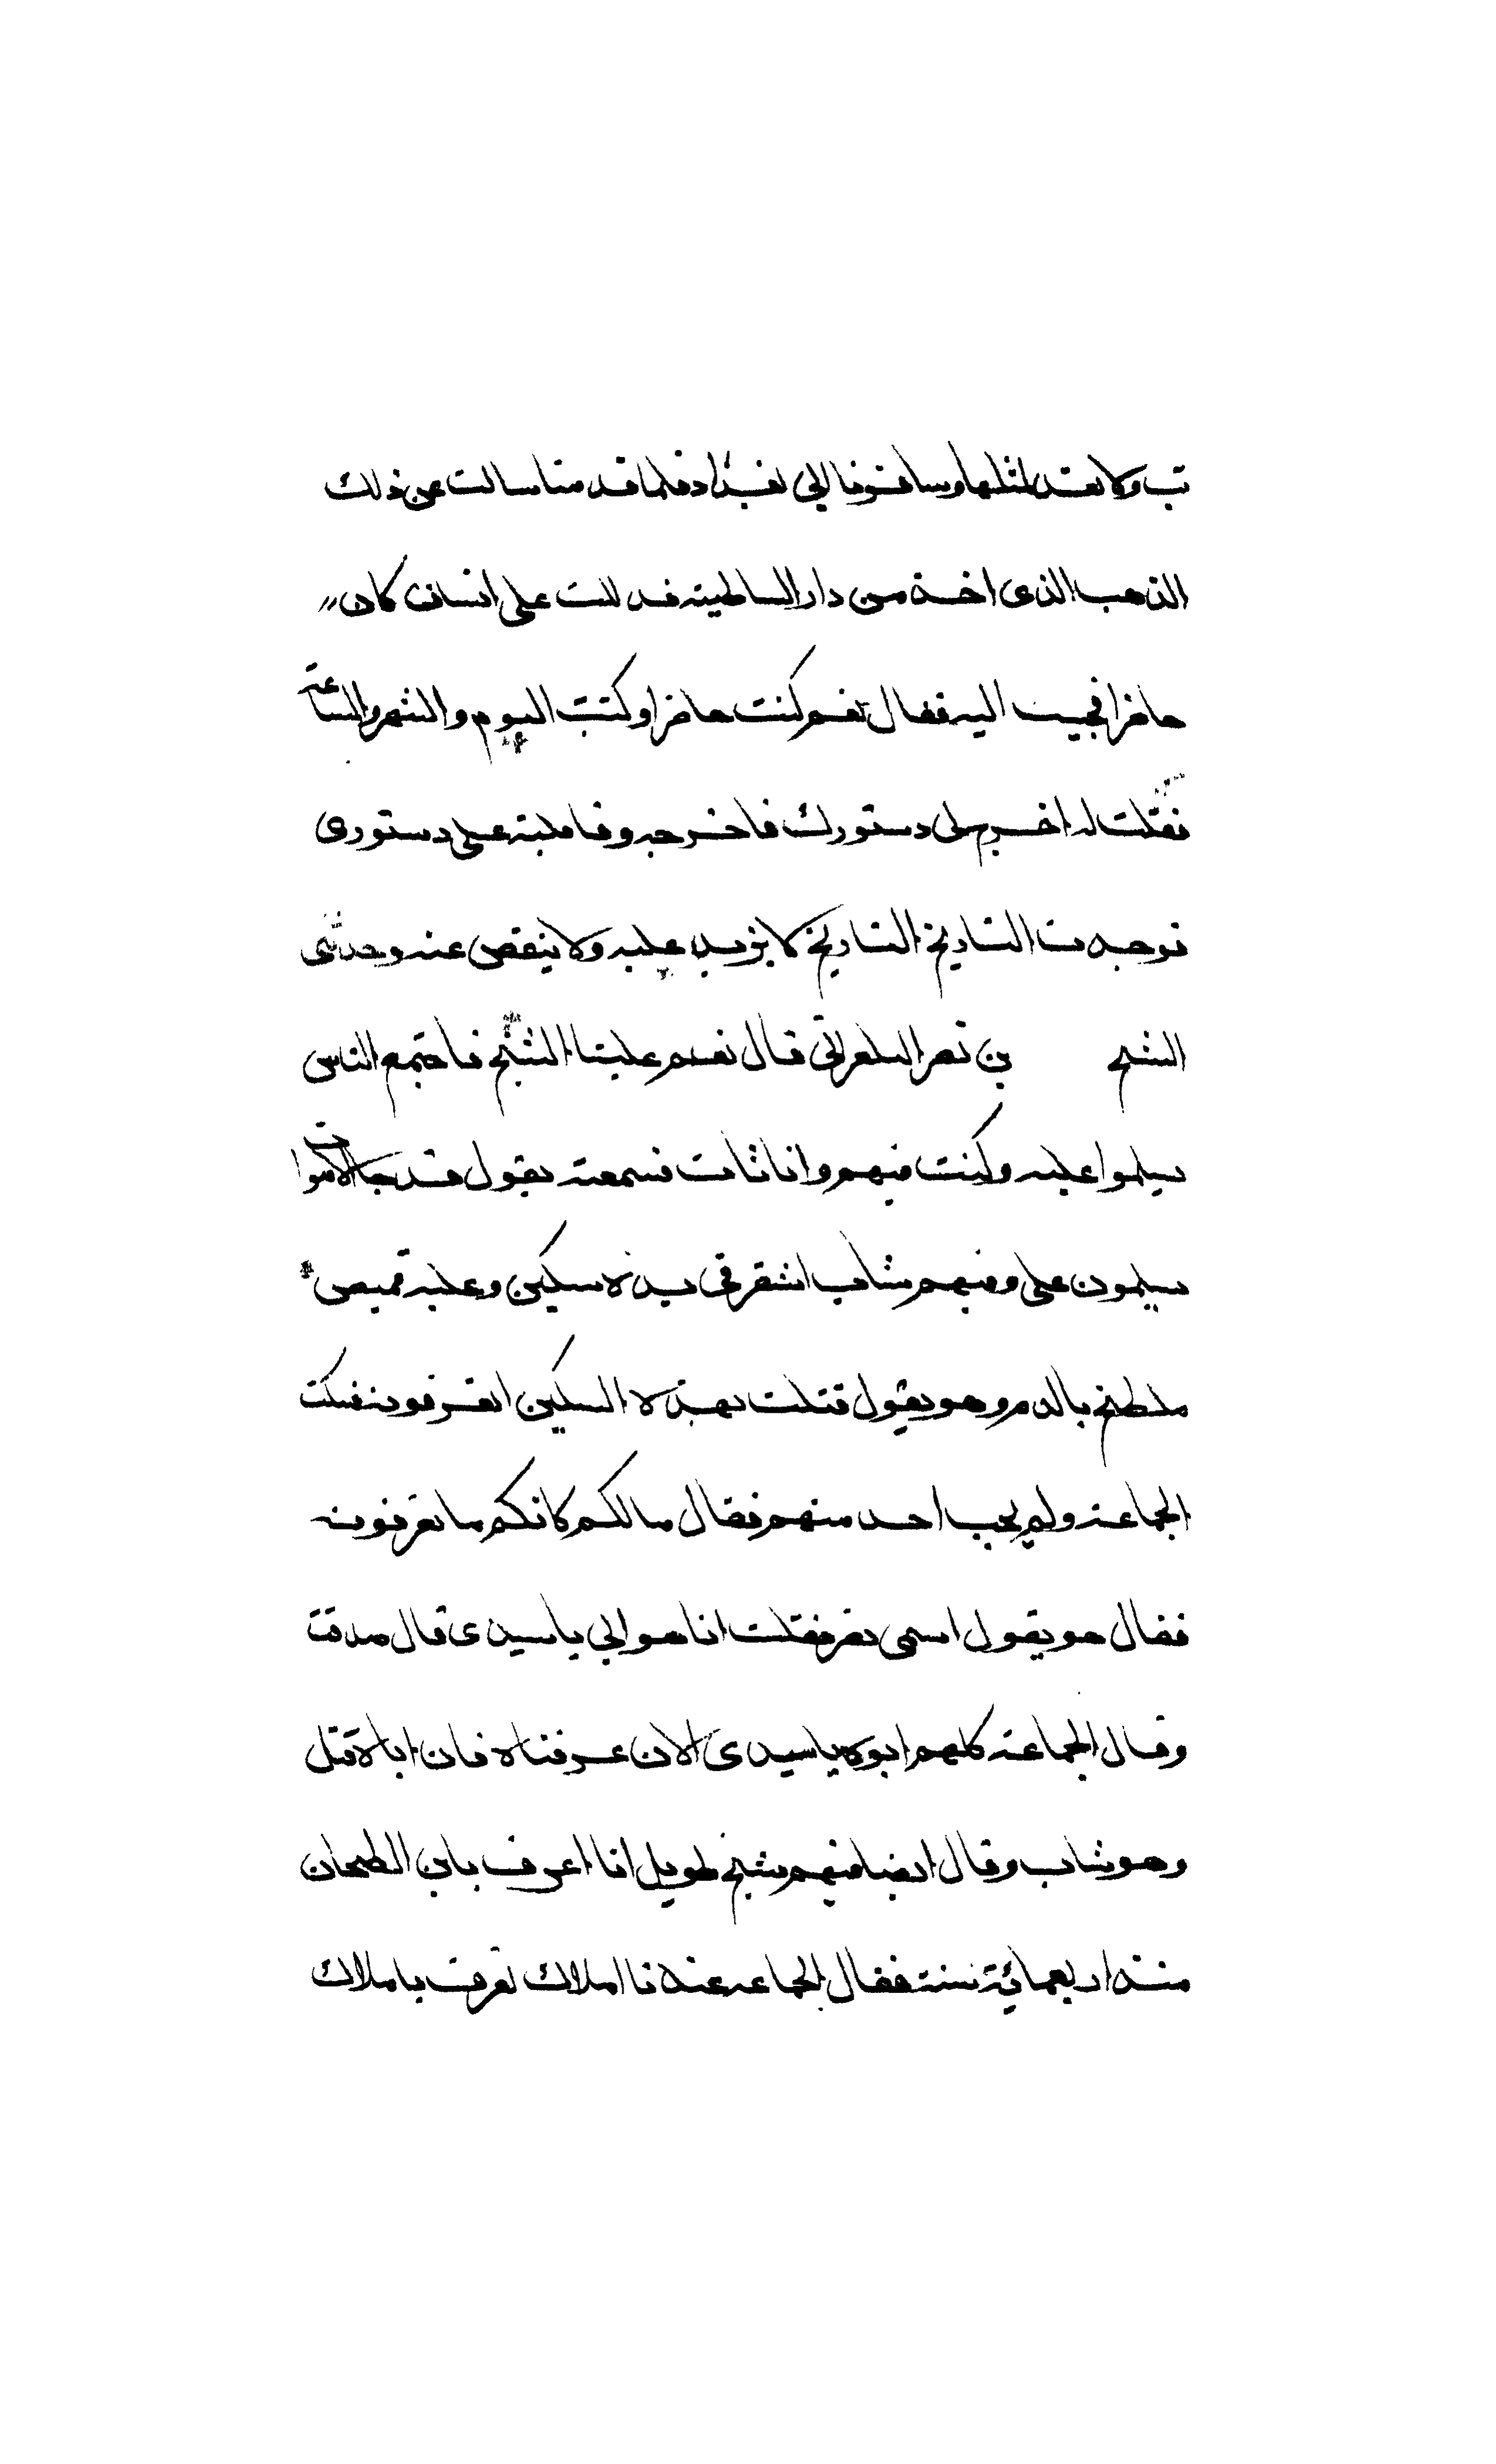 تب ولا تعد لمثلها وسافرنا الى بغداد فلما قدمنا سالت عن ذلك
الذهب الذي اخذ من دار السلطنه فدللت على انسان كان
حاضرا فجيت اليه فقال نعم كنت حاضرا وكتبت اليوم والشهر والساعة
فقلت له اخرج لى دستورك فاخرجه وقابلته على دستورى
فوجدت التاريخ التاريخ لا يزيد عليه ولا ينقص عنه وحدثني
الشيخ بن نصر قال قدم علينا الشيخ فاجتمع الناس
يسلموا عليه وكنت فيهم وانا شاب فسمعته يقول قد جا الاموات
يسلمون على وفيهم شاب اشقر في يده سكين وعليه قميص
ملطخ بالدم وهو يقول قتلت بهذه السكين اتعرفونه فسكت
الجماعة ولم يجب احد منهم فقال مالكم كانكم ما تعرفونه
فقال هو يقول اسمى نصر فقلت انا هو ابي يا سيدى قال صدقت
وقال الجماعة كلهم ابوه يا سيدى الان عرفناه فان اباه قتل
وهو شاب وقال ايضا فيهم شيخ طويل انا اعرف بابن الطحان
منذ اربعمائة سنة فقال الجماعه عندنا املاك تعرف باملاك